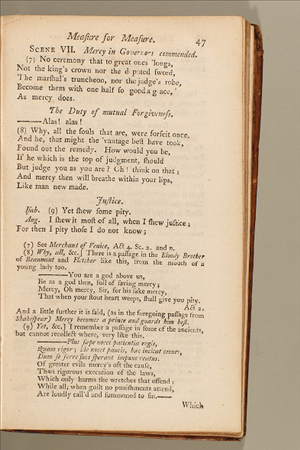 Measure for Measure. 47
SCENE VII. Mercy in Governors commended.
(7) No ceremony that to great ones 'longs,
Not the king's crown nor the deputed sword,
The marshal's truncheon, nor the judge's robe,
Become them with one half so good a grace,
As mercy does.
The Duty of mutual Forgiveness.
——Alas! alas!
(8) Why, all the souls that are, were forfeit once,
And he, that might the vantage best have took,
Found out the remedy. How would you be,
If he which is the top of judgment, should
But judge you as you are? Oh! think on that;
And mercy then will breathe within your lips,
Like man new made.
Justice.
Isab. (9) Yet shew some pity.
Ang. I shew it most of all, when I shew justice;
For then I pity those I do not know;
(7) See Merchant of Venice, Act 4. Sc. 2. and n.
(8) Why, all, &c.] There is a passage in the Bloody Brother
of Beaumont and Fletcher like this, from the mouth of a
young lady too.
——You are a god above us,
Be as a god then, full of saving mercy;
Mercy, Oh mercy, Sir, for his sake mercy,
That when your stout heart weeps, shall give you pity.
Act 2.
And a little further it is said, (as in the foregoing passage from
Shakespear) Mercy becomes a prince and guards him best.
(9) Yet, &c.] I remember a passage in some of the ancients,
but cannot recollect where, very like this.
——Plus sæpe nocet patientia regis,
Quam rigor; ille nocet paucis, hæc incitat omnes,
Dum se ferre suos sperant impune reatus.
Of greater evils mercy's oft the cause,
Than rigorous execution of the laws,
Which only harms the wretches that offend;
While all, when guilt no punishments attend,
Are loudly call'd and summoned to sin.——
Which